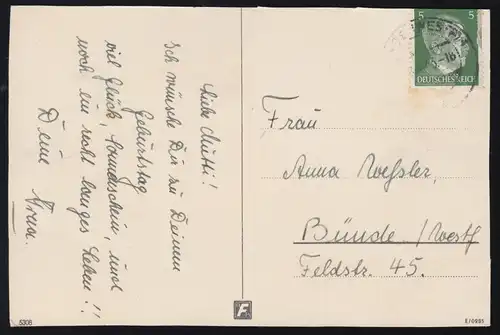 Liebe Mutti!
Ich wünsche Dir zu Deinem
Geburtstag
viel Glück, Sonnenschein, und
noch ein recht langes Leben!!
Deine
5 5
DEUTSCHES REICH
Frau
Anna
Bünde /Westf
Feldstr. 45.
5308
F
E/0995